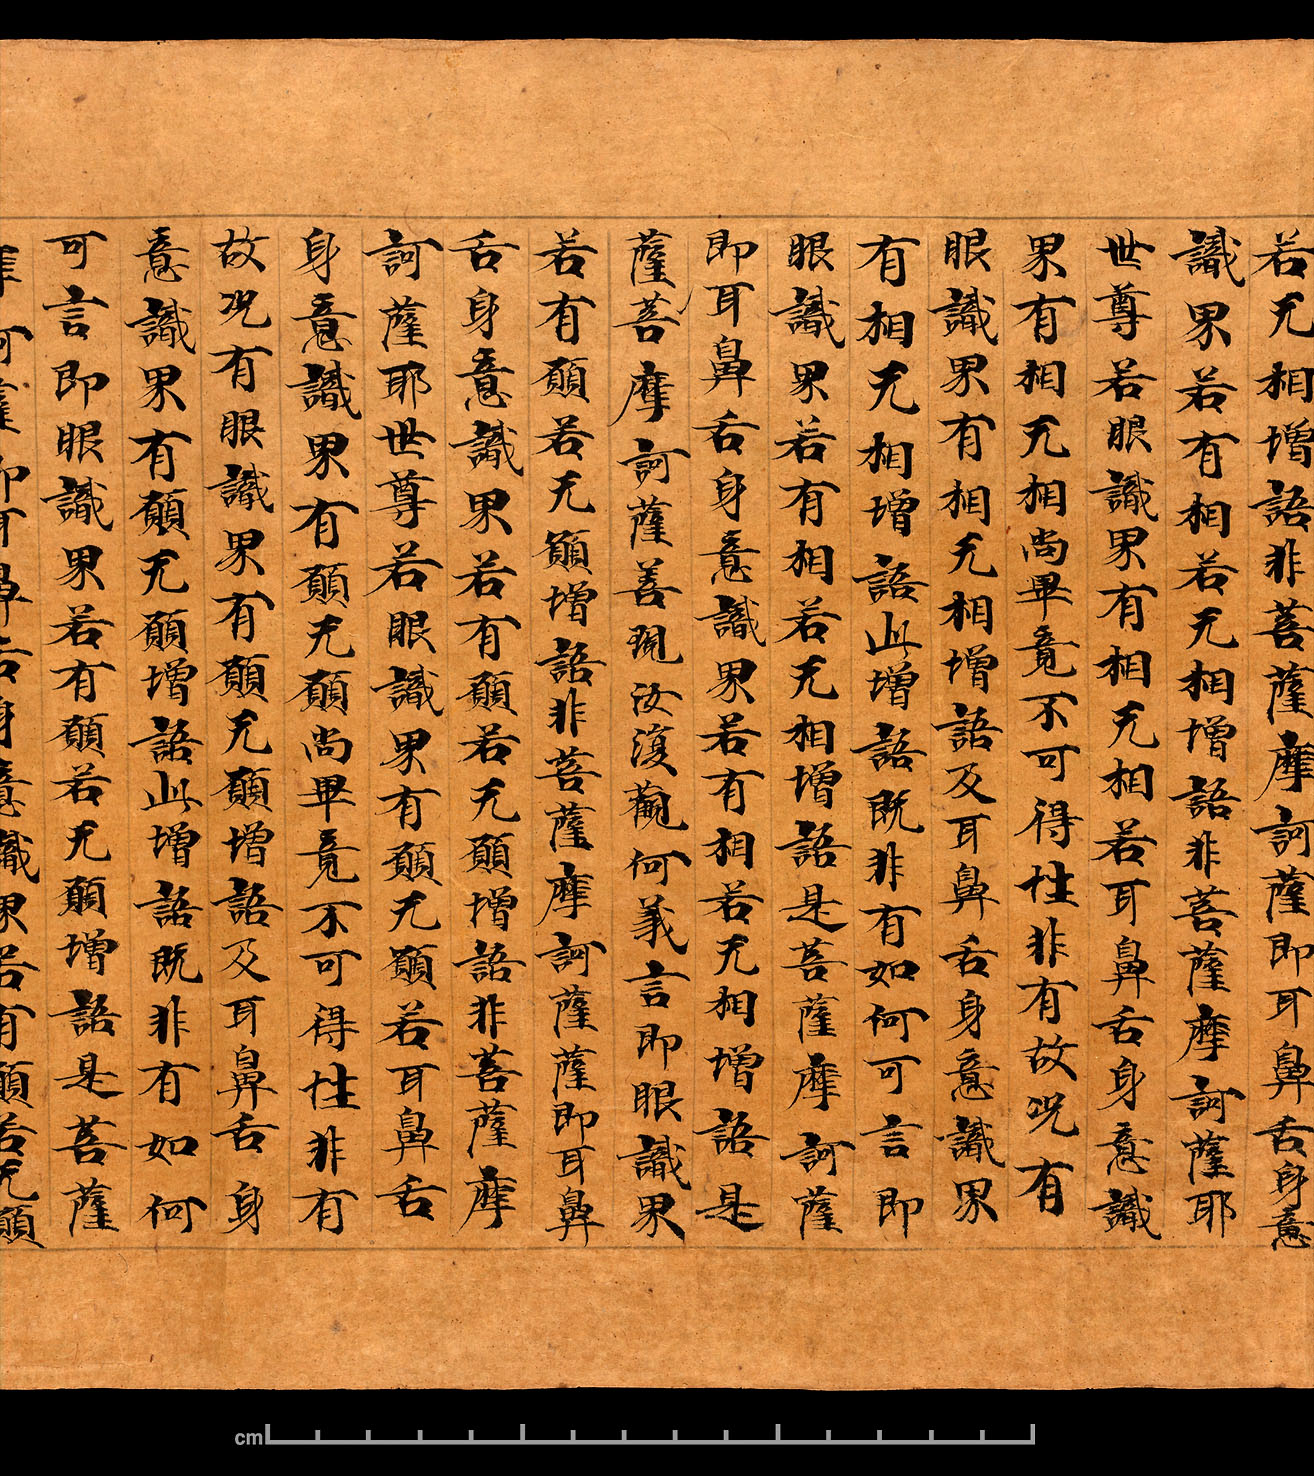 若无相增語非菩薩摩訶薩即耳鼻舌身意
識界若有相若无相增語非菩薩摩訶薩耶
世尊若眼識界有相无相若耳鼻舌身意識
界有相无相尚畢竟不可得性非有故况有
眼識界有相无相增語及耳鼻舌身意識界
有相无相增語此增語既非有如何可言即
眼識界若有相若无相增語是菩薩摩訶薩
即耳鼻舌身意識界若有相若无相增語是
薩菩摩訶薩善現汝復觀何義言即眼識界
若有願若无願增語非菩薩摩訶薩薩即耳鼻
舌身意識界若有願若无願增語非菩薩摩
訶薩耶世尊若眼識界有願无願若耳鼻舌
身意識界有願无願尚畢竟不可得性非有
故况有眼識界有願无願增語及耳鼻舌身
意識界有願无願增語此增語既非有如何
可言即眼識界若有願若无願增語是菩薩
摩訶薩即耳鼻舌身意識界若有願若无願
cm